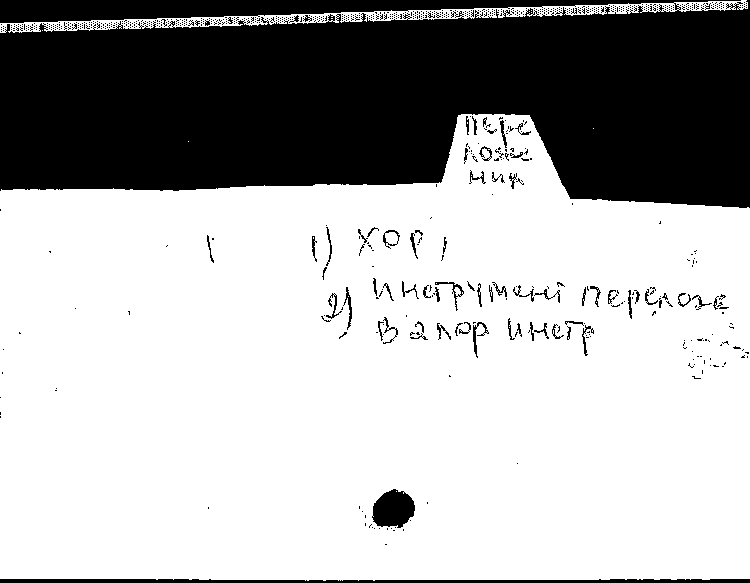 пере
ложе
ния
1) хор,
2) Инструмент переложе
В алф инстр